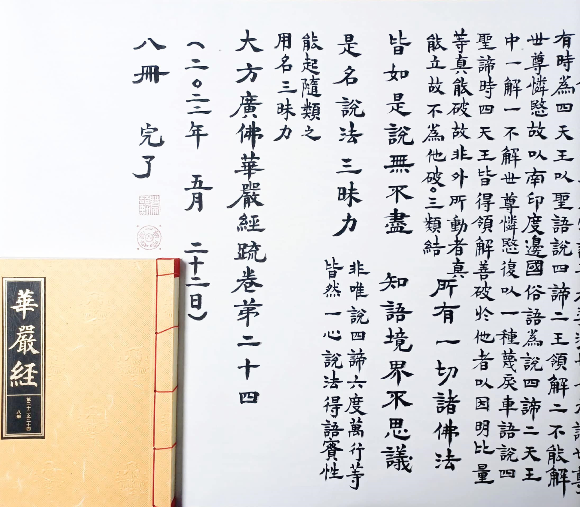 有時為四天王以聖語說四諦二王領解二不能解
世尊憐愍故以南印度邊國俗語為說四諦二天王
中一解一不解世尊憐愍復以一種蔑戾車語說四
聖諦時四天王皆得領解善破於他者以因明比量
等真能破故非外所動者真
能立故不為他破。三類結
所有一切諸佛法
皆如是說無不盡 知語境界不思議
是名說法三昧力
非唯說四諦六度萬行等
皆然一心說法得語實性
能起隨類之
用名三昧力
大方廣佛華嚴經疏卷第二十四
(二〇二二年 五月 二十二日)
八冊 完了
華嚴經
八冊